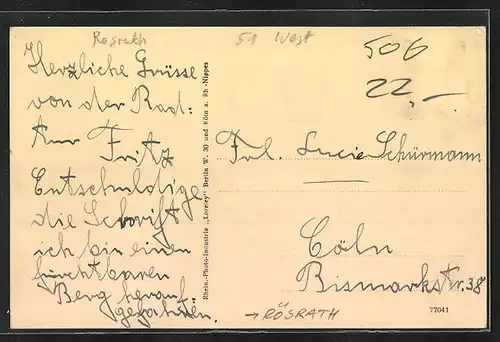 Rösrath
51 West
506
22,-
Herzliche Grüsse
von der Rad:
tour Fritz
Entschuldige
die Schrift
ich bin einen
furchtbaren
Berg herauf:
gefahren.
Rhein.-Photo-Industrie „Loreley" Berlin W. 30 und Köln a. Rh.-Nippes
Frl. Lucie Schürmann
Cöln
Bismarkstr. 38
→ RÖSRATH
77041